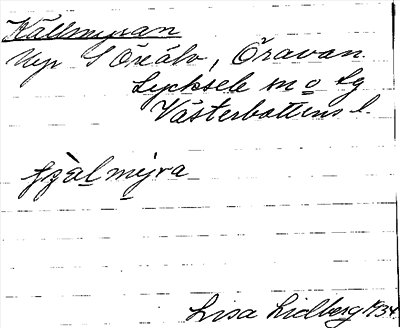 Källmyran
Myr S Öreälv, Öravan.
Lycksele m o lg
Västerbottens l.
Lisa Lidberg 1934